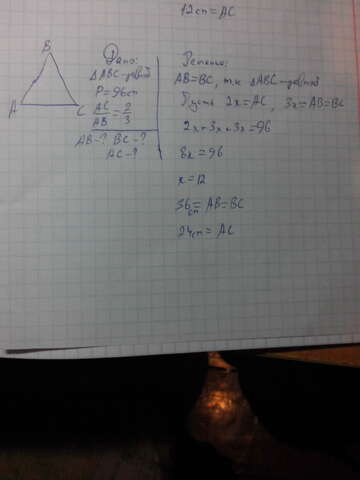 12см = AC
B
A
C
① Дано:
△ABC - равнб
P = 96см
AC/AB = 2/3
AB - ? BC - ?
AC - ?
Решение:
AB = BC, т.к △ABC - равноб
Пусть 2x = AC, 3x = AB = BC
2x + 3x + 3x = 96
8x = 96
x = 12
36см = AB = BC
24см = AC